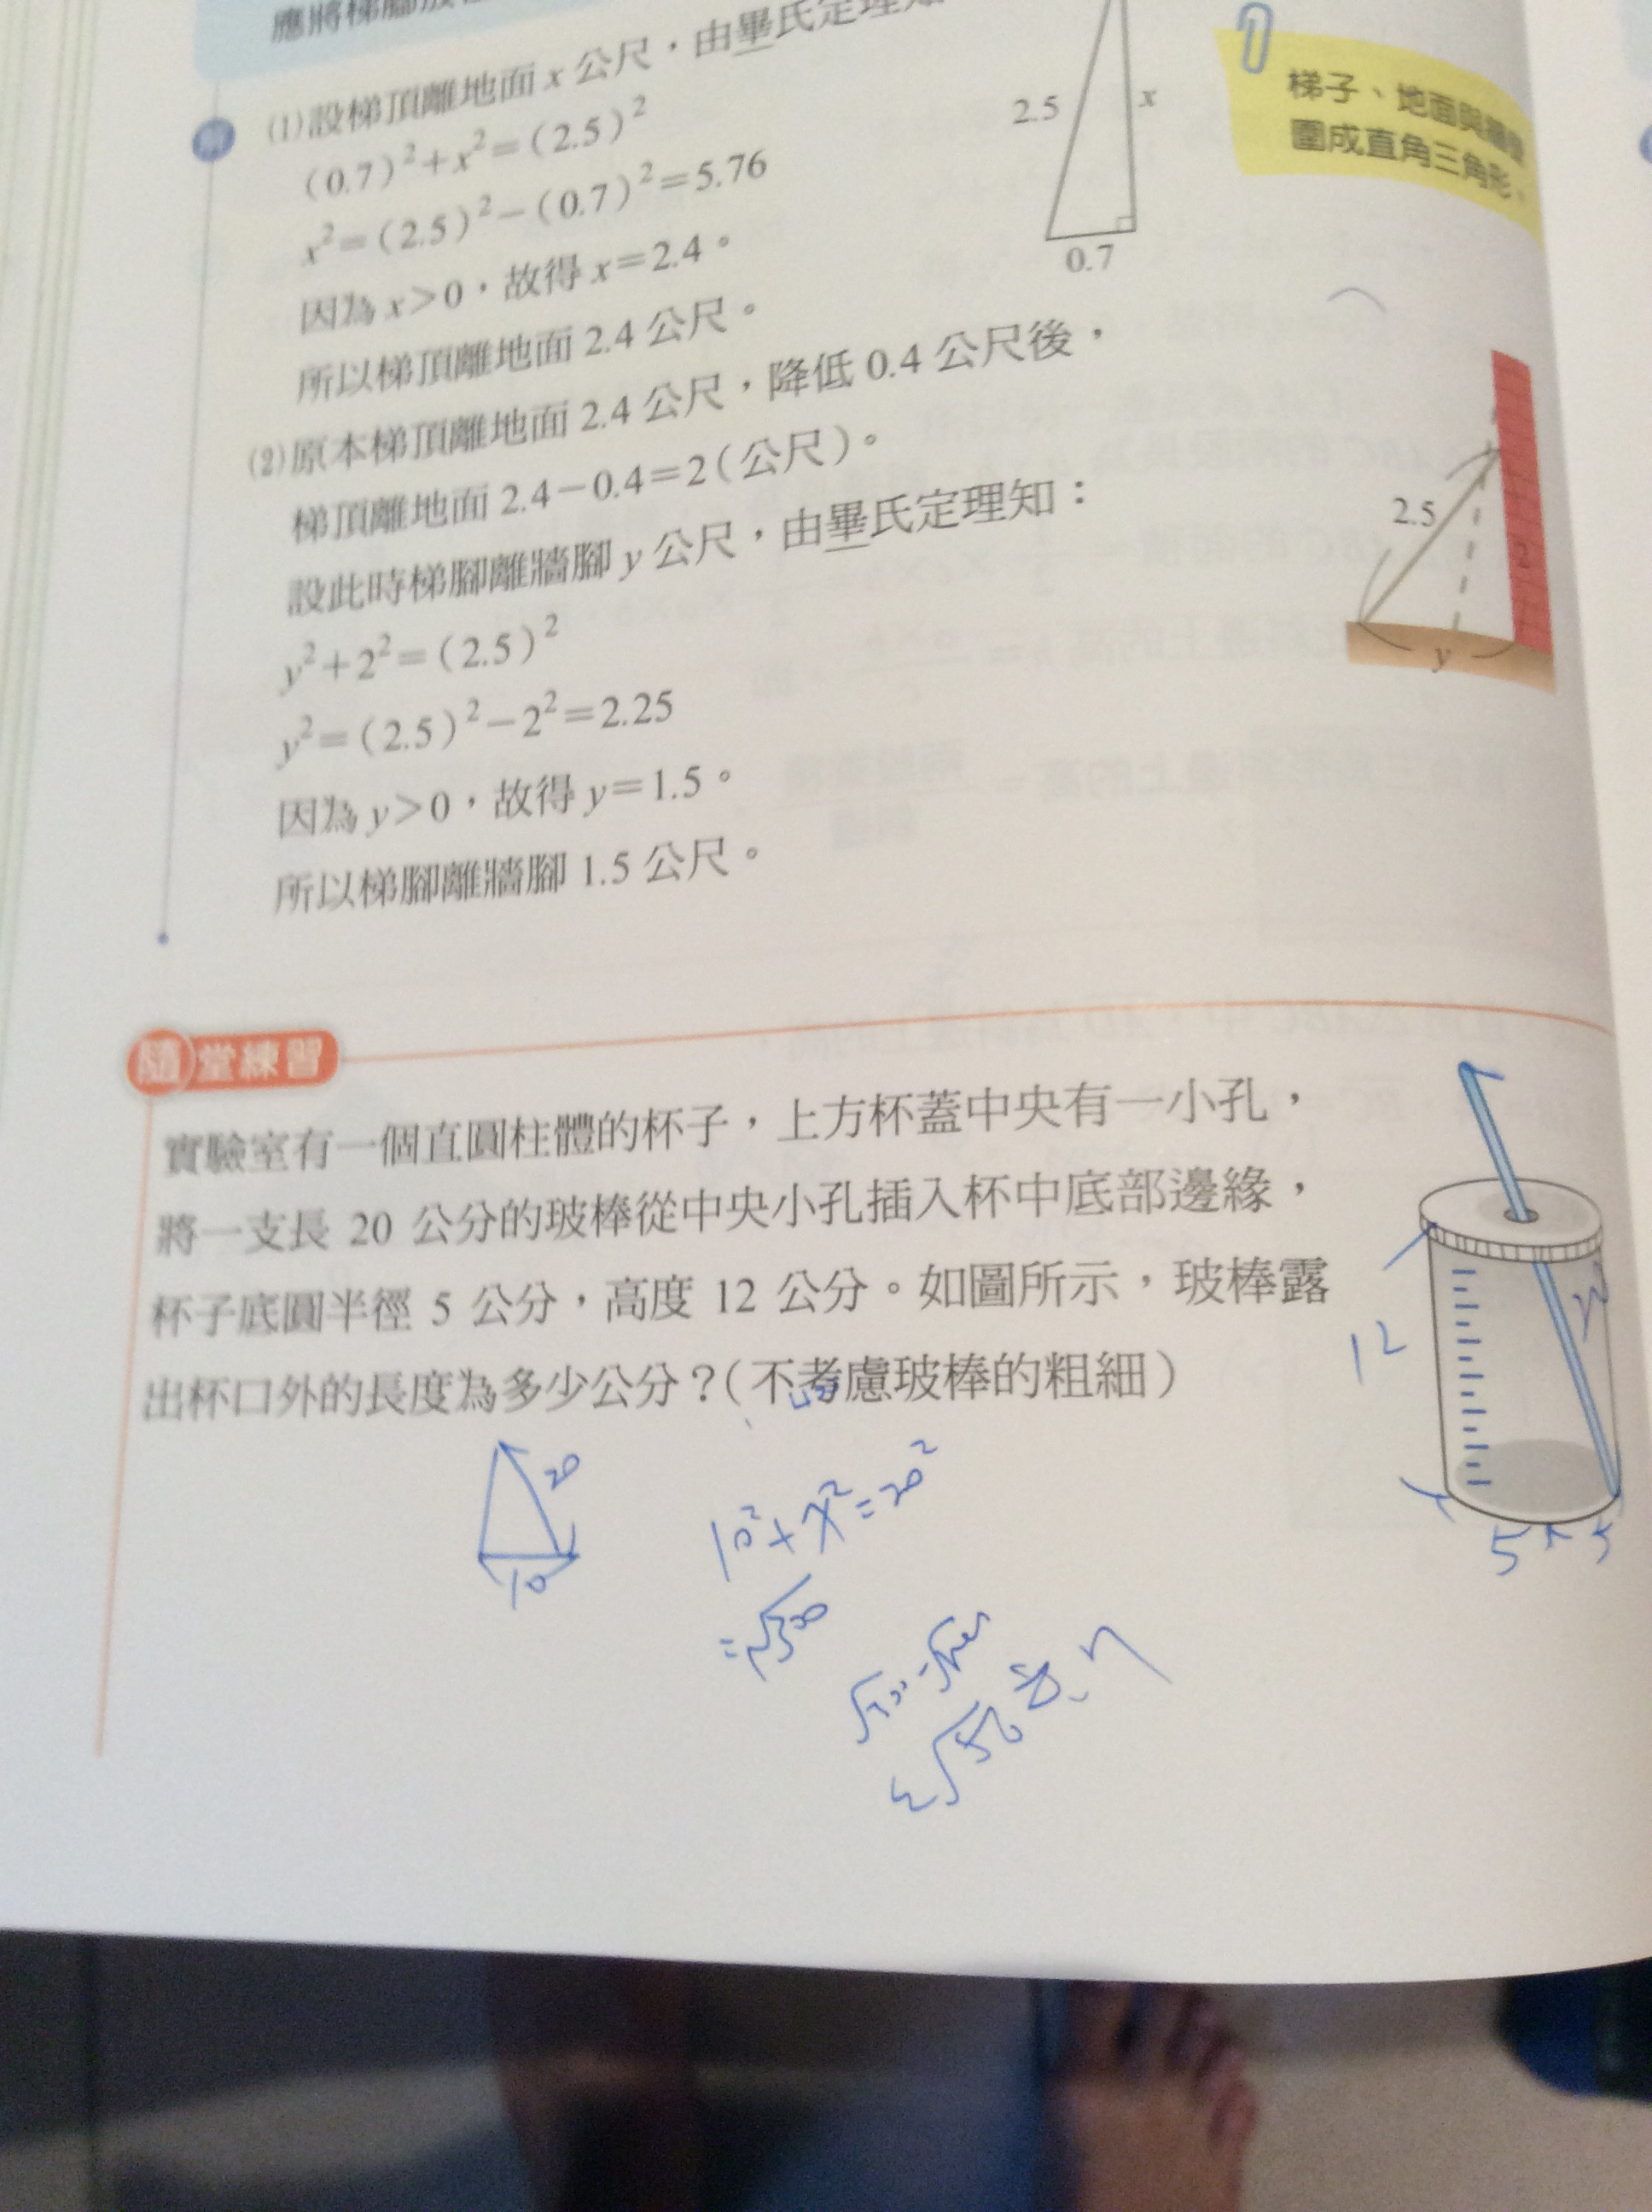 應將梯腳放在
解 (1)設梯頂離地面 x 公尺，由畢氏定理知
(0.7)²+x²=(2.5)²
x²=(2.5)²-(0.7)²=5.76
因為 x>0，故得 x=2.4。
所以梯頂離地面 2.4 公尺。
(2)原本梯頂離地面 2.4 公尺，降低 0.4 公尺後，
梯頂離地面 2.4-0.4=2(公尺)。
設此時梯腳離牆腳 y 公尺，由畢氏定理知：
y²+2²=(2.5)²
y²=(2.5)²-2²=2.25
因為 y>0，故得 y=1.5。
所以梯腳離牆腳 1.5 公尺。
2.5
x
0.7
1
梯子、地面與牆壁
圍成直角三角形。
2.5
2
y
隨堂練習
實驗室有一個直圓柱體的杯子，上方杯蓋中央有一小孔，
將一支長 20 公分的玻棒從中央小孔插入杯中底部邊緣，
杯子底圓半徑 5 公分，高度 12 公分。如圖所示，玻棒露
出杯口外的長度為多少公分？(不考慮玻棒的粗細)
12
5
5
20
10
10²+x²=20²
=√300